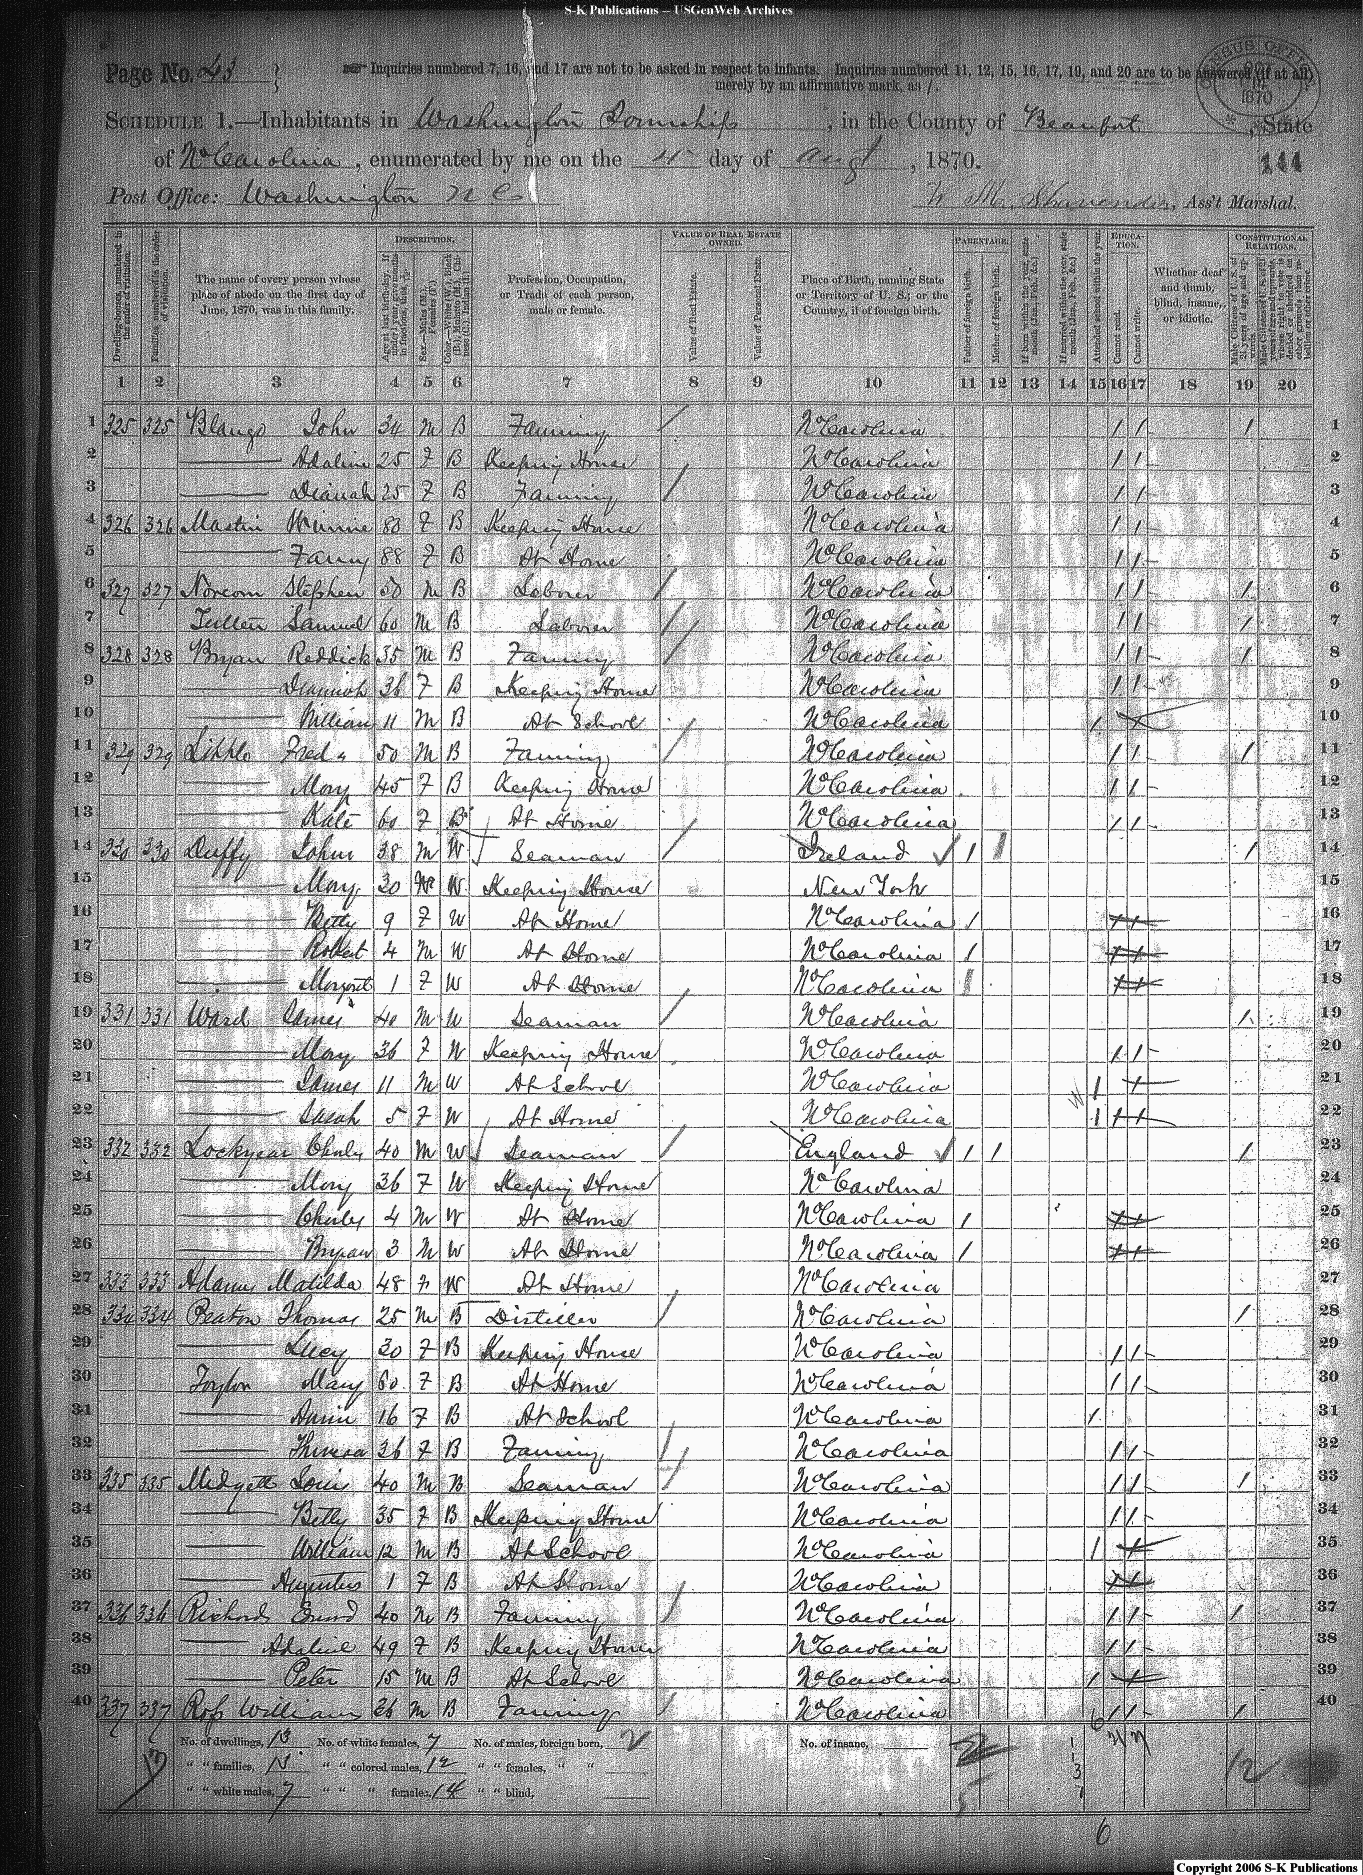 S-K Publications – USGenWeb Archives
Page No. 43
Inquiries numbered 7, 16, and 17 are not to be asked in respect to infants. Inquiries numbered 11, 12, 15, 16, 17, 19, and 20 are to be answered (if at all)
merely by an affirmative mark, as /.
1870
SCHEDULE 1.—Inhabitants in Washington Township, in the County of Beaufort, State
of No Carolina, enumerated by me on the 4 day of Aug, 1870.
144
Post Office: Washington N C
W M, Ass't Marshal.
DESCRIPTION. VALUE OF REAL ESTATE OWNED. PARENTAGE. EDUCATION. CONSTITUTIONAL RELATIONS.
The name of every person whose place of abode on the first day of June, 1870, was in this family.
Profession, Occupation, or Trade of each person, male or female.
Value of Real Estate.
Place of Birth, naming State or Territory of U. S.; or the Country, if of foreign birth.
Father of foreign birth.
Mother of foreign birth.
Attended school within the year.
Cannot read.
Cannot write.
Whether deaf and dumb, blind, insane, or idiotic.
1 2 3 4 5 6 7 8 9 10 11 12 13 14 15 16 17 18 19 20
1 325 325 Blango John 34 M B Farming / No Carolina / / / 1
2 Adaline 25 F B Keeping House No Carolina / / 2
3 Dianah 25 F B Farming / No Carolina / / 3
4 326 326 Martin Winnie 80 F B Keeping House No Carolina / / 4
5 Fanny 88 F B At Home No Carolina / / 5
6 327 327 Norcom Stephen 50 M B Laborer / No Carolina / / / 6
7 Samuel 60 M B Laborer / No Carolina / / / 7
8 328 328 Bryan Reddick 35 M B Farming / No Carolina / / / 8
9 36 F B Keeping House No Carolina / / 9
10 William 11 M B At School No Carolina / 10
11 329 329 Fred 50 M B Farming / No Carolina / / / 11
12 Mary 45 F B Keeping House No Carolina / / 12
13 Kate 60 F B At Home No Carolina / / 13
14 330 330 Duffy John 38 M W Seaman / Ireland / / / 14
15 Mary 30 W Keeping House New York 15
16 Betty 9 F W At Home No Carolina / 16
17 Robert 4 M W At Home No Carolina / 17
18 Margret 1 F W At Home No Carolina / 18
19 331 331 Ward James 40 M W Seaman / No Carolina / 19
20 Mary 36 F W Keeping House No Carolina / / 20
21 James 11 M W At School No Carolina / 21
22 Sarah 5 F W At Home No Carolina / 22
23 332 332 Lockyear Charly 40 M W Seaman / England / / / 23
24 Mary 36 F W Keeping House No Carolina 24
25 Charles 4 M W At Home No Carolina / 25
26 Bryan 3 M W At Home No Carolina / 26
27 333 333 Adams Matilda 48 F W At Home No Carolina 27
28 334 334 Peaton Thomas 25 M B Distiller / No Carolina / 28
29 Lucy 30 F B Keeping House No Carolina / / 29
30 Mary 60 F B At Home No Carolina / / 30
31 Annie 16 F B At School No Carolina / 31
32 36 F B Farming / No Carolina / / 32
33 335 335 Midgett Louis 40 M B Seaman / No Carolina / / / 33
34 Betty 35 F B Keeping House No Carolina / / 34
35 William 12 M B At School No Carolina / 35
36 Augustus 1 F B At Home No Carolina 36
37 336 336 Richards 40 M B Farming / No Carolina / / / 37
38 Adaline 49 F B Keeping House No Carolina / / 38
39 Peter 15 M B At School No Carolina / 39
40 337 337 Ross William 36 M B Farming / No Carolina / / / 40
No. of dwellings, 13 No. of white females, 7 No. of males, foreign born, 2 No. of insane,
" " families, 13 " " colored males, 12 " " females, " "
" " white males, 7 " " " females, 14 " " blind,
12
6
Copyright 2006 S-K Publications